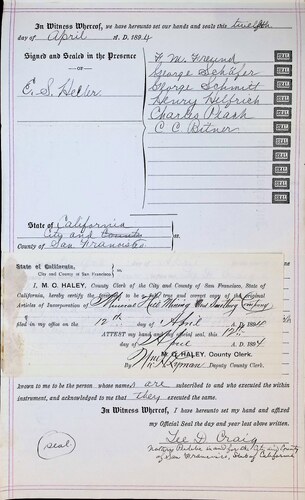 In Witness Whereof, we have hereunto set our hands and seals this twelfth
day of April A. D. 1894
Signed and Sealed in the Presence
OF
E. S. Heller
F. M. Freund
George Schäfer
George Schmitt
Henry Helfrich
Charles Plash
C. C. Bitner
SEAL
SEAL
SEAL
SEAL
SEAL
SEAL
SEAL
SEAL
SEAL
SEAL
State of California
City and County
County of San Francisco
State of California,
City and County of San Francisco
I, M. C. HALEY, County Clerk of the City and County of San Francisco, State of
California, hereby certify the to be a full true and correct copy of the original
Articles of Incorporation of Mineral Hill Mining and Smelting Company
filed in my office on the 12th day of April A. D. 1894
ATTEST my hand and official seal, this 12th
day of April A. D. 1894
M. C. HALEY, County Clerk.
By Wm R. Ryman Deputy County Clerk.
known to me to be the person whose names are subscribed to and who executed the within
instrument, and acknowledged to me that they executed the same.
In Witness Whereof, I have hereunto set my hand and affixed
my Official Seal the day and year last above written.
seal.
Lee D. Craig
Notary Public in and for the City and County
of San Francisco, State of California